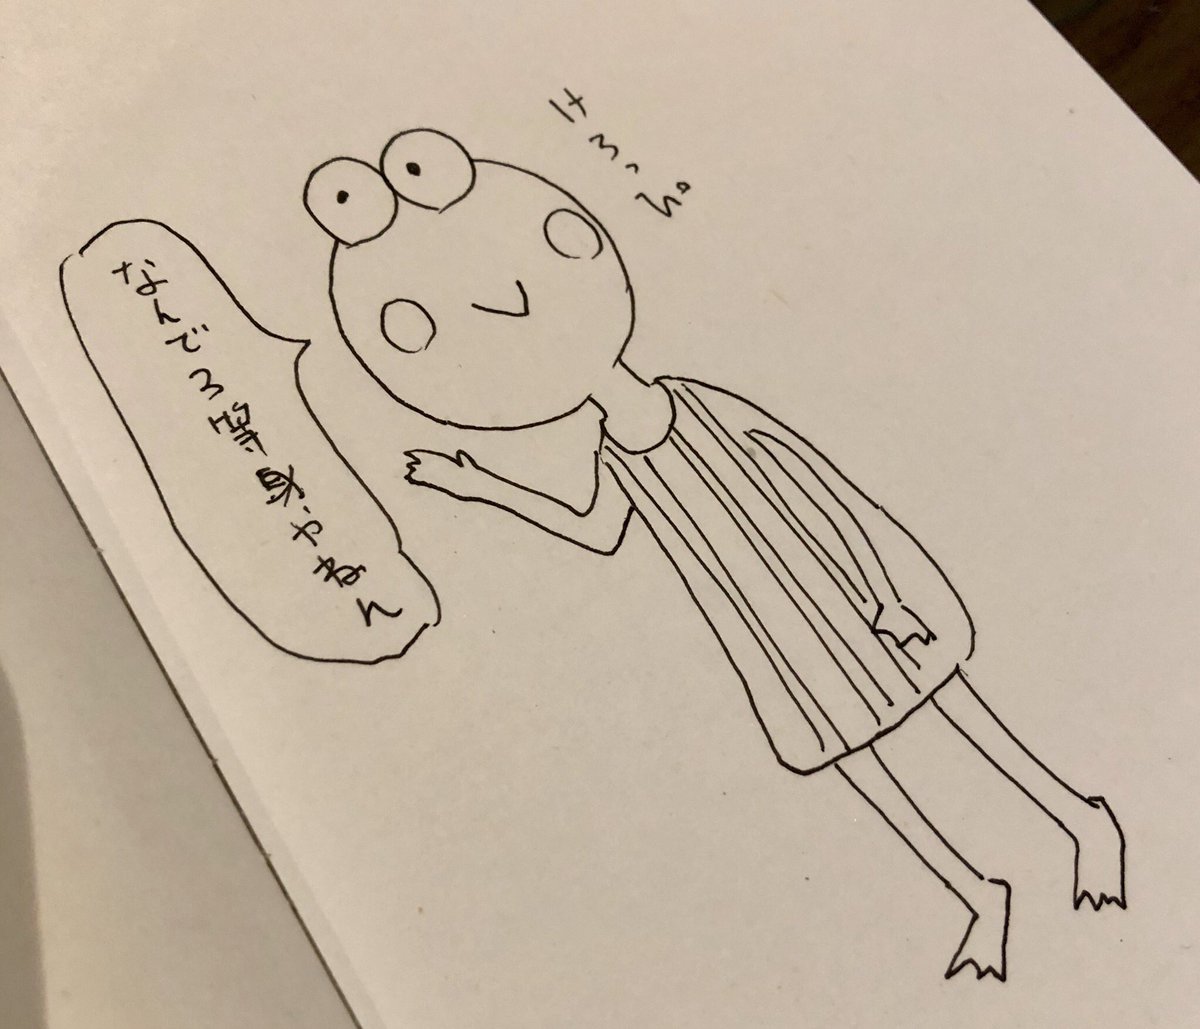 けろっぴ
なんで3等身やねん